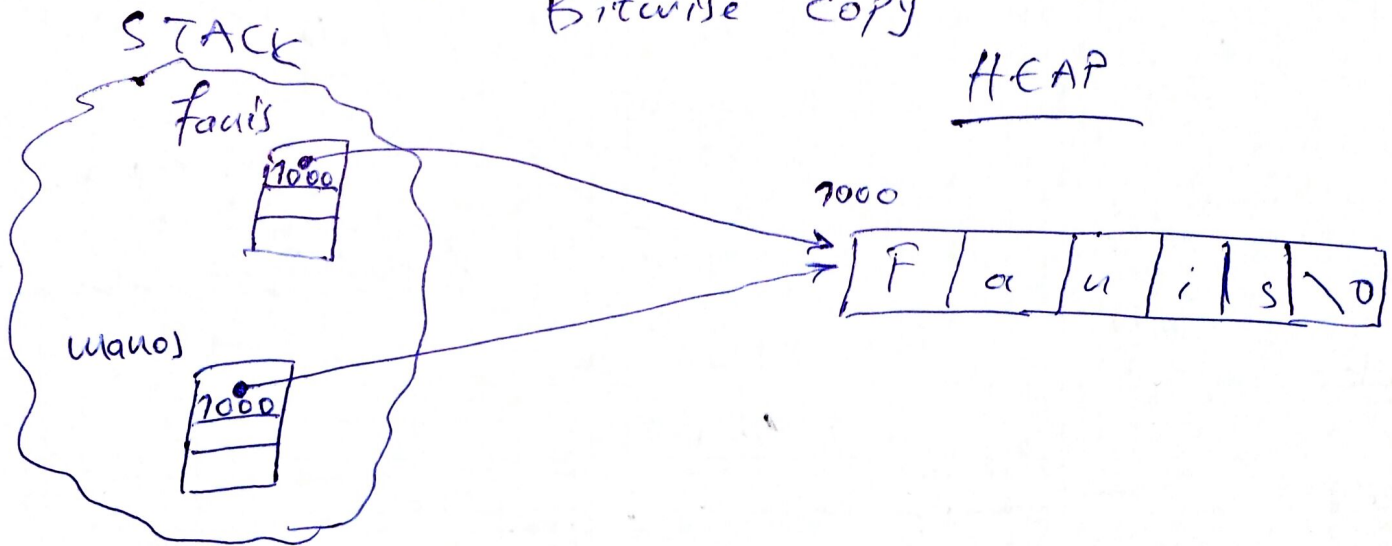 Bitwise Copy
STACK
HEAP
fanis
1000
1000
F a n i s \0
manos
1000